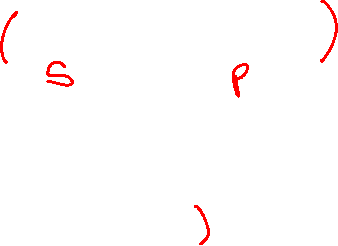 ( )
S P
)